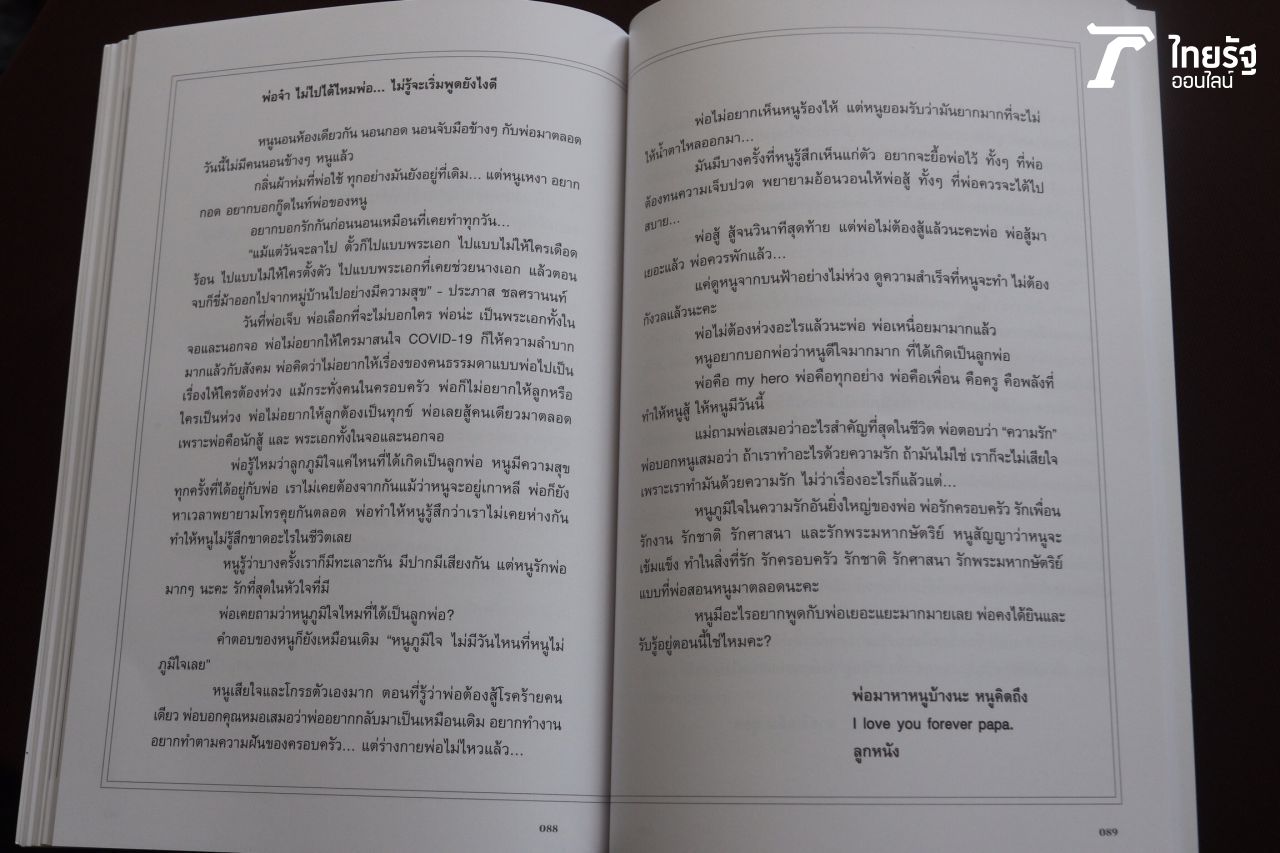 พ่อจ๋า ไม่ไปได้ไหมพ่อ... ไม่รู้จะเริ่มพูดยังไงดี
หนูนอนห้องเดียวกัน นอนกอด นอนจับมือข้างๆ กับพ่อมาตลอด
วันนี้ไม่มีคนนอนข้างๆ หนูแล้ว
กลิ่นผ้าห่มที่พ่อใช้ ทุกอย่างมันยังอยู่ที่เดิม... แต่หนูเหงา อยาก
กอด อยากบอกกู๊ดไนท์พ่อของหนู
อยากบอกรักกันก่อนนอนเหมือนที่เคยทำทุกวัน...
"แม้แต่วันจะลาไป ตั้วก็ไปแบบพระเอก ไปแบบไม่ให้ใครเดือด
ร้อน ไปแบบไม่ให้ใครตั้งตัว ไปแบบพระเอกที่เคยช่วยนางเอก แล้วตอน
จบก็ขี่ม้าออกไปจากหมู่บ้านไปอย่างมีความสุข" - ประภาส ชลศรานนท์
วันที่พ่อเจ็บ พ่อเลือกที่จะไม่บอกใคร พ่อน่ะ เป็นพระเอกทั้งใน
จอและนอกจอ พ่อไม่อยากให้ใครมาสนใจ COVID-19 ก็ให้ความลำบาก
มากแล้วกับสังคม พ่อคิดว่าไม่อยากให้เรื่องของคนธรรมดาแบบพ่อไปเป็น
เรื่องให้ใครต้องห่วง แม้กระทั่งคนในครอบครัว พ่อก็ไม่อยากให้ลูกหรือ
ใครเป็นห่วง พ่อไม่อยากให้ลูกต้องเป็นทุกข์ พ่อเลยสู้คนเดียวมาตลอด
เพราะพ่อคือนักสู้ และ พระเอกทั้งในจอและนอกจอ
พ่อรู้ไหมว่าลูกภูมิใจแค่ไหนที่ได้เกิดเป็นลูกพ่อ หนูมีความสุข
ทุกครั้งที่ได้อยู่กับพ่อ เราไม่เคยต้องจากกันแม้ว่าหนูจะอยู่เกาหลี พ่อก็ยัง
หาเวลาพยายามโทรคุยกันตลอด พ่อทำให้หนูรู้สึกว่าเราไม่เคยห่างกัน
ทำให้หนูไม่รู้สึกขาดอะไรในชีวิตเลย
หนูรู้ว่าบางครั้งเราก็มีทะเลาะกัน มีปากมีเสียงกัน แต่หนูรักพ่อ
มากๆ นะคะ รักที่สุดในหัวใจที่มี
พ่อเคยถามว่าหนูภูมิใจไหมที่ได้เป็นลูกพ่อ?
คำตอบของหนูก็ยังเหมือนเดิม "หนูภูมิใจ ไม่มีวันไหนที่หนูไม่
ภูมิใจเลย"
หนูเสียใจและโกรธตัวเองมาก ตอนที่รู้ว่าพ่อต้องสู้โรคร้ายคน
เดียว พ่อบอกคุณหมอเสมอว่าพ่ออยากกลับมาเป็นเหมือนเดิม อยากทำงาน
อยากทำตามความฝันของครอบครัว... แต่ร่างกายพ่อไม่ไหวแล้ว...
088
พ่อไม่อยากเห็นหนูร้องไห้ แต่หนูยอมรับว่ามันยากมากที่จะไม่
ให้น้ำตาไหลออกมา...
มันมีบางครั้งที่หนูรู้สึกเห็นแก่ตัว อยากจะยื้อพ่อไว้ ทั้งๆ ที่พ่อ
ต้องทนความเจ็บปวด พยายามอ้อนวอนให้พ่อสู้ ทั้งๆ ที่พ่อควรจะได้ไป
สบาย...
พ่อสู้ สู้จนวินาทีสุดท้าย แต่พ่อไม่ต้องสู้แล้วนะคะพ่อ พ่อสู้มา
เยอะแล้ว พ่อควรพักแล้ว...
แค่ดูหนูจากบนฟ้าอย่างไม่ห่วง ดูความสำเร็จที่หนูจะทำ ไม่ต้อง
กังวลแล้วนะคะ
พ่อไม่ต้องห่วงอะไรแล้วนะพ่อ พ่อเหนื่อยมามากแล้ว
หนูอยากบอกพ่อว่าหนูดีใจมากมาก ที่ได้เกิดเป็นลูกพ่อ
พ่อคือ my hero พ่อคือทุกอย่าง พ่อคือเพื่อน คือครู คือพลังที่
ทำให้หนูสู้ ให้หนูมีวันนี้
แม่ถามพ่อเสมอว่าอะไรสำคัญที่สุดในชีวิต พ่อตอบว่า "ความรัก"
พ่อบอกหนูเสมอว่า ถ้าเราทำอะไรด้วยความรัก ถ้ามันไม่ใช่ เราก็จะไม่เสียใจ
เพราะเราทำมันด้วยความรัก ไม่ว่าเรื่องอะไรก็แล้วแต่...
หนูภูมิใจในความรักอันยิ่งใหญ่ของพ่อ พ่อรักครอบครัว รักเพื่อน
รักงาน รักชาติ รักศาสนา และรักพระมหากษัตริย์ หนูสัญญาว่าหนูจะ
เข้มแข็ง ทำในสิ่งที่รัก รักครอบครัว รักชาติ รักศาสนา รักพระมหากษัตริย์
แบบที่พ่อสอนหนูมาตลอดนะคะ
หนูมีอะไรอยากพูดกับพ่อเยอะแยะมากมายเลย พ่อคงได้ยินและ
รับรู้อยู่ตอนนี้ใช่ไหมคะ?
พ่อมาหาหนูบ้างนะ หนูคิดถึง
I love you forever papa.
ลูกหนัง
089
ไทยรัฐ
ออนไลน์